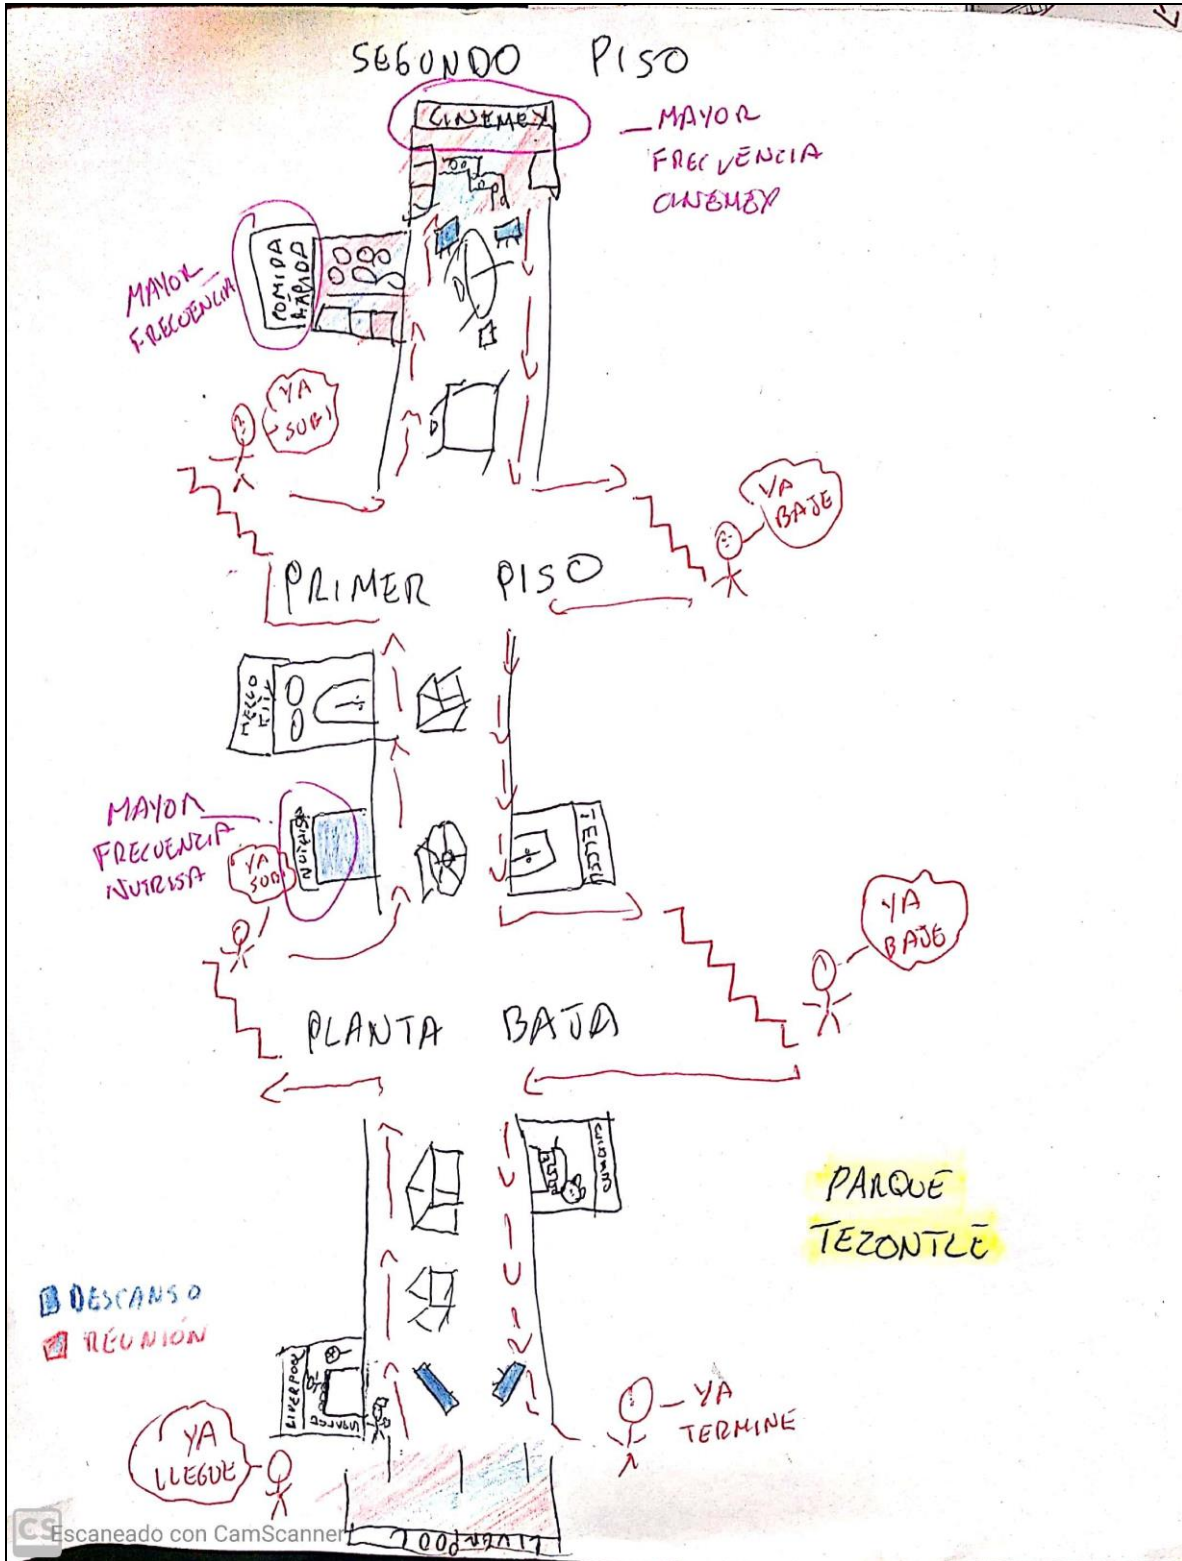 SEGUNDO PISO
CINEMEX
MAYOR
FRECUENCIA
CINEMEX
COMIDA
RÁPIDA
MAYOR
FRECUENCIA
YA
SUBI
YA
BAJE
PRIMER PISO
MAYOR
FRECUENCIA
NUTRISA
NUTRISA
YA
SUBI
TELCEL
YA
BAJE
PLANTA BAJA
PARQUE
TEZONTLE
DESCANSO
REUNIÓN
LIVERPOOL
YA
LLEGUE
YA
TERMINE
LIVERPOOL
CS Escaneado con CamScanner